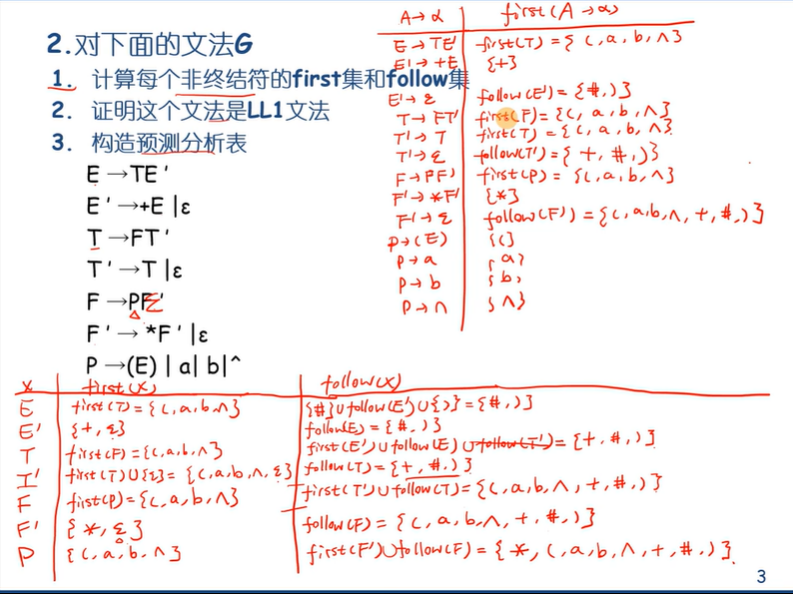 2.对下面的文法G
1. 计算每个非终结符的first集和follow集
2. 证明这个文法是LL1文法
3. 构造预测分析表
E →TE'
E'→+E |ε
T →FT'
T'→T |ε
F →PF'
F'→ *F'|ε
P →(E) | a| b|^
A→α first(A→α)
E→TE' first(T)={(,a,b,∧}
E'→+E {+}
E'→ε follow(E')={#,)}
T→FT' first(F)={(,a,b,∧}
T'→T first(T)={(,a,b,∧}
T'→ε follow(T')={+,#,)}
F→PF' first(P)={(,a,b,∧}
F'→*F' {*}
F'→ε follow(F')={(,a,b,∧,+,#,)}
P→(E) {(}
P→a {a}
P→b {b}
P→∧ {∧}
X first(X) follow(X)
E first(T)={(,a,b,∧} {#}∪follow(E')∪{)}={#,)}
E' {+,ε} follow(E)={#,)}
T first(F)={(,a,b,∧} first(E')∪follow(E)∪follow(T')={+,#,)}
T' first(T)∪{ε}={(,a,b,∧,ε} follow(T)={+,#,)}
F first(P)={(,a,b,∧} first(T')∪follow(T)={(,a,b,∧,+,#,)}
F' {*,ε} follow(F)={(,a,b,∧,+,#,)}
P {(,a,b,∧} first(F')∪follow(F)={*,(,a,b,∧,+,#,)}
3